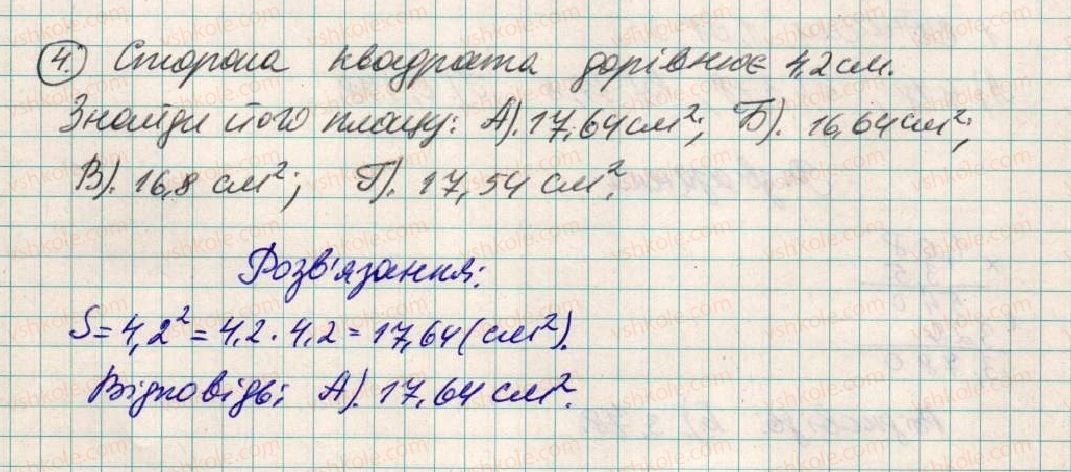 4. Сторона квадрата дорівнює 4,2 см.
Знайди його площу: А). 17,64 см²; Б). 16,64 см²;
В). 16,8 см²; Г). 17,54 см².
Розв'язання:
S = 4,2² = 4,2 · 4,2 = 17,64 (см²).
Відповідь: А). 17,64 см².